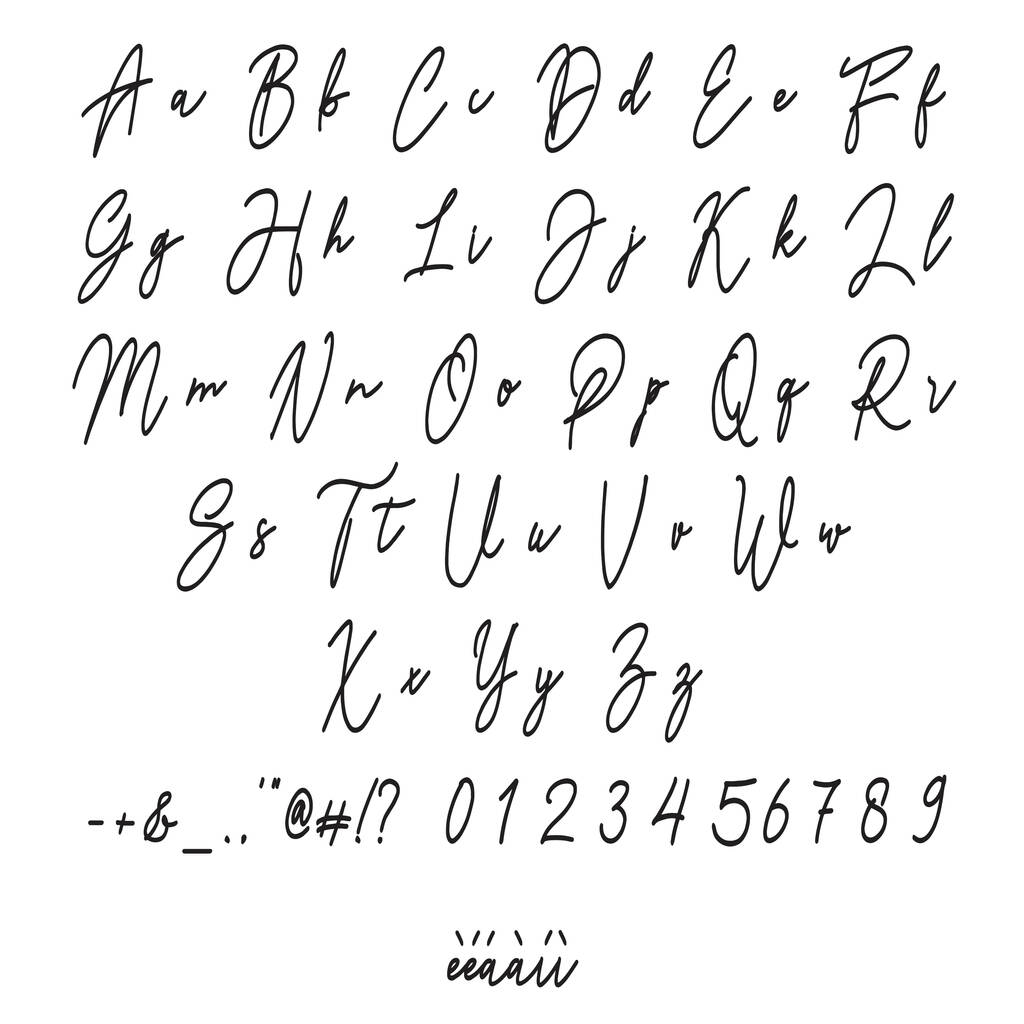 A a B b C c D d E e F f
G g H h I i J j K k L l
M m N n O o P p Q q R r
S s T t U u V v W w
X x Y y Z z
- + & _ . . ' " @ # ! ? 0 1 2 3 4 5 6 7 8 9
èéáàíì